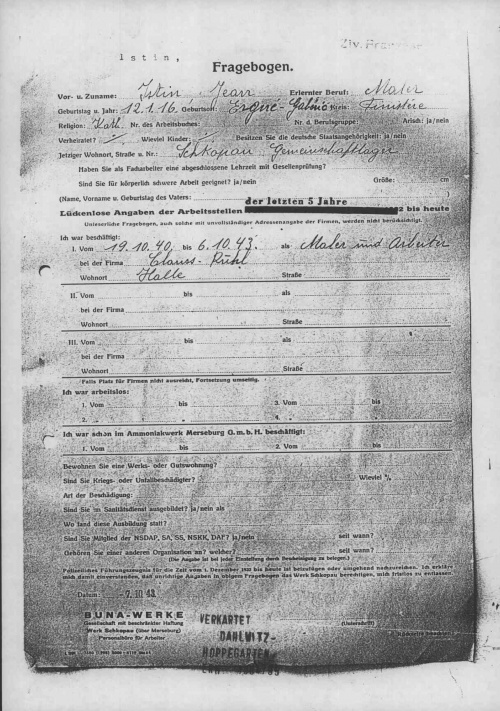 Istin,
Ziv.
Fragebogen.
Vor- u. Zuname: Istin Jean Erlernter Beruf: Maler
Geburtstag u. Jahr: 12.1.16 Geburtsort: Ergué-Gabéric Kreis: Finistère
Religion: Kath. Nr. des Arbeitsbuches: Nr. d. Berufsgruppe: Arisch: ja/nein
Verheiratet? Wieviel Kinder: Besitzen Sie die deutsche Staatsangehörigkeit: ja/nein
Jetziger Wohnort, Straße u. Nr.: Schkopau Gemeinschaftslager
Haben Sie als Facharbeiter eine abgeschlossene Lehrzeit mit Gesellenprüfung?
Sind Sie für körperlich schwere Arbeit geeignet? ja/nein Größe: cm
(Name, Vorname u. Geburtstag des Vaters: )
der letzten 5 Jahre
Lückenlose Angaben der Arbeitsstellen 2 bis heute
Unleserliche Fragebogen, auch solche mit unvollständiger Adressenangabe der Firmen, werden nicht berücksichtigt.
Ich war beschäftigt:
I. Vom 19.10.40. bis 6.10.43. als Maler und Arbeiter
bei der Firma Clauss-Rühl
Wohnort Halle Straße
II. Vom bis als
bei der Firma
Wohnort Straße
III. Vom bis als
bei der Firma
Wohnort Straße
Falls Platz für Firmen nicht ausreicht, Fortsetzung umseitig.
Ich war arbeitslos:
1. Vom bis 3. Vom bis
2. 4.
Ich war schon im Ammoniakwerk Merseburg G.m.b.H. beschäftigt:
1. Vom bis 2. Vom bis
Bewohnen Sie eine Werks- oder Gutswohnung?
Sind Sie Kriegs- oder Unfallbeschädigter? Wieviel %
Art der Beschädigung:
Sind Sie im Sanitätsdienst ausgebildet? ja/nein als
Wo fand diese Ausbildung statt?
Sind Sie Mitglied der NSDAP, SA, SS, NSKK, DAF? ja/nein seit wann?
Gehören Sie einer anderen Organisation an? welcher? seit wann?
(Die Angabe ist bei jeder Einstellung durch Bescheinigung zu belegen.)
Polizeiliches Führungszeugnis für die Zeit vom 1. Dezember 1932 bis heute ist beizufügen oder umgehend nachzureichen. Ich erkläre
mich damit einverstanden, daß unrichtige Angaben in obigem Fragebogen das Werk Schkopau berechtigen, mich fristlos zu entlassen.
Datum: 10.43
BUNA-WERKE
Gesellschaft mit beschränkter Haftung
Werk Schkopau (über Merseburg)
Personalbüro für Arbeiter
(Unterschrift)
VERKARTET
DAHLWITZ-
HOPPEGARTEN